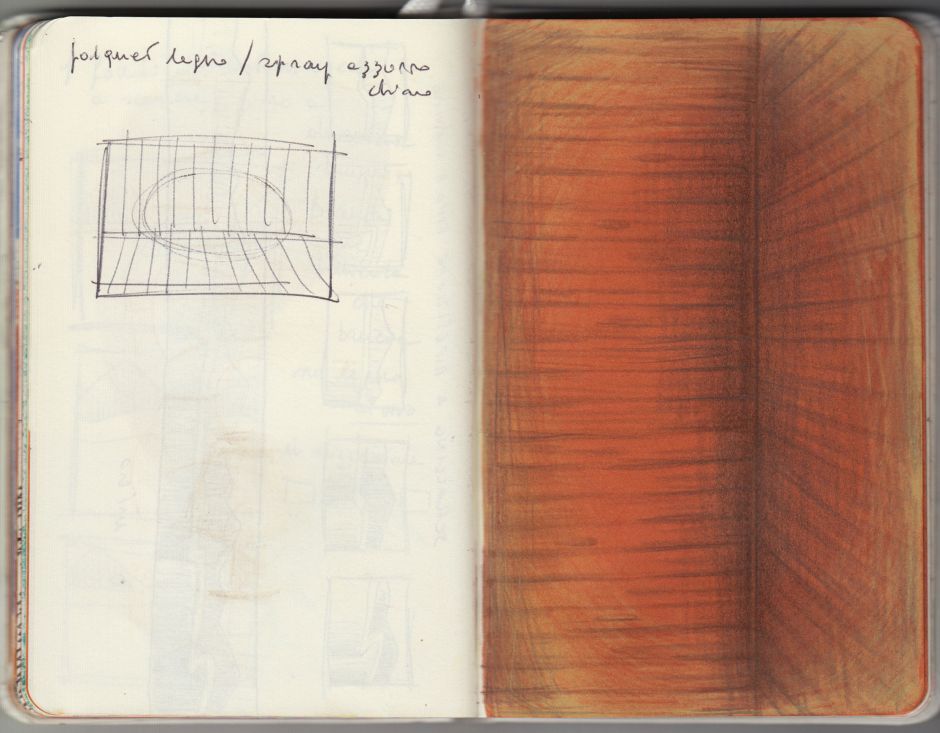 parquet legno / spray azzurro
chiaro